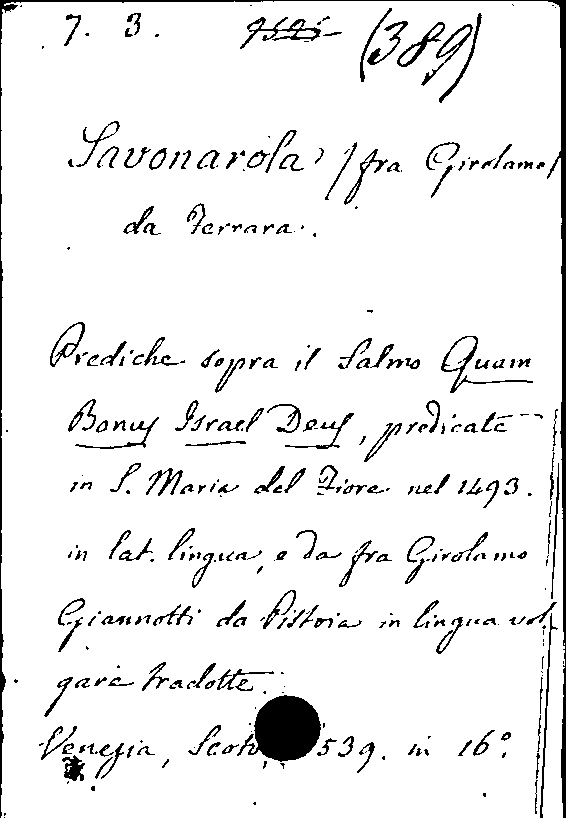 7. 3. (389)
Savonarola, /fra Girolamo/
da Ferrara.
Prediche sopra il Salmo Quam
Bonus Israel Deus, predicate
in S. Maria del Fiore nel 1493.
in lat. lingua, e da fra Girolamo
Giannotti da Pistoia in lingua vol-
gare tradotte.
Venezia, Scoto, 539. in 16°.